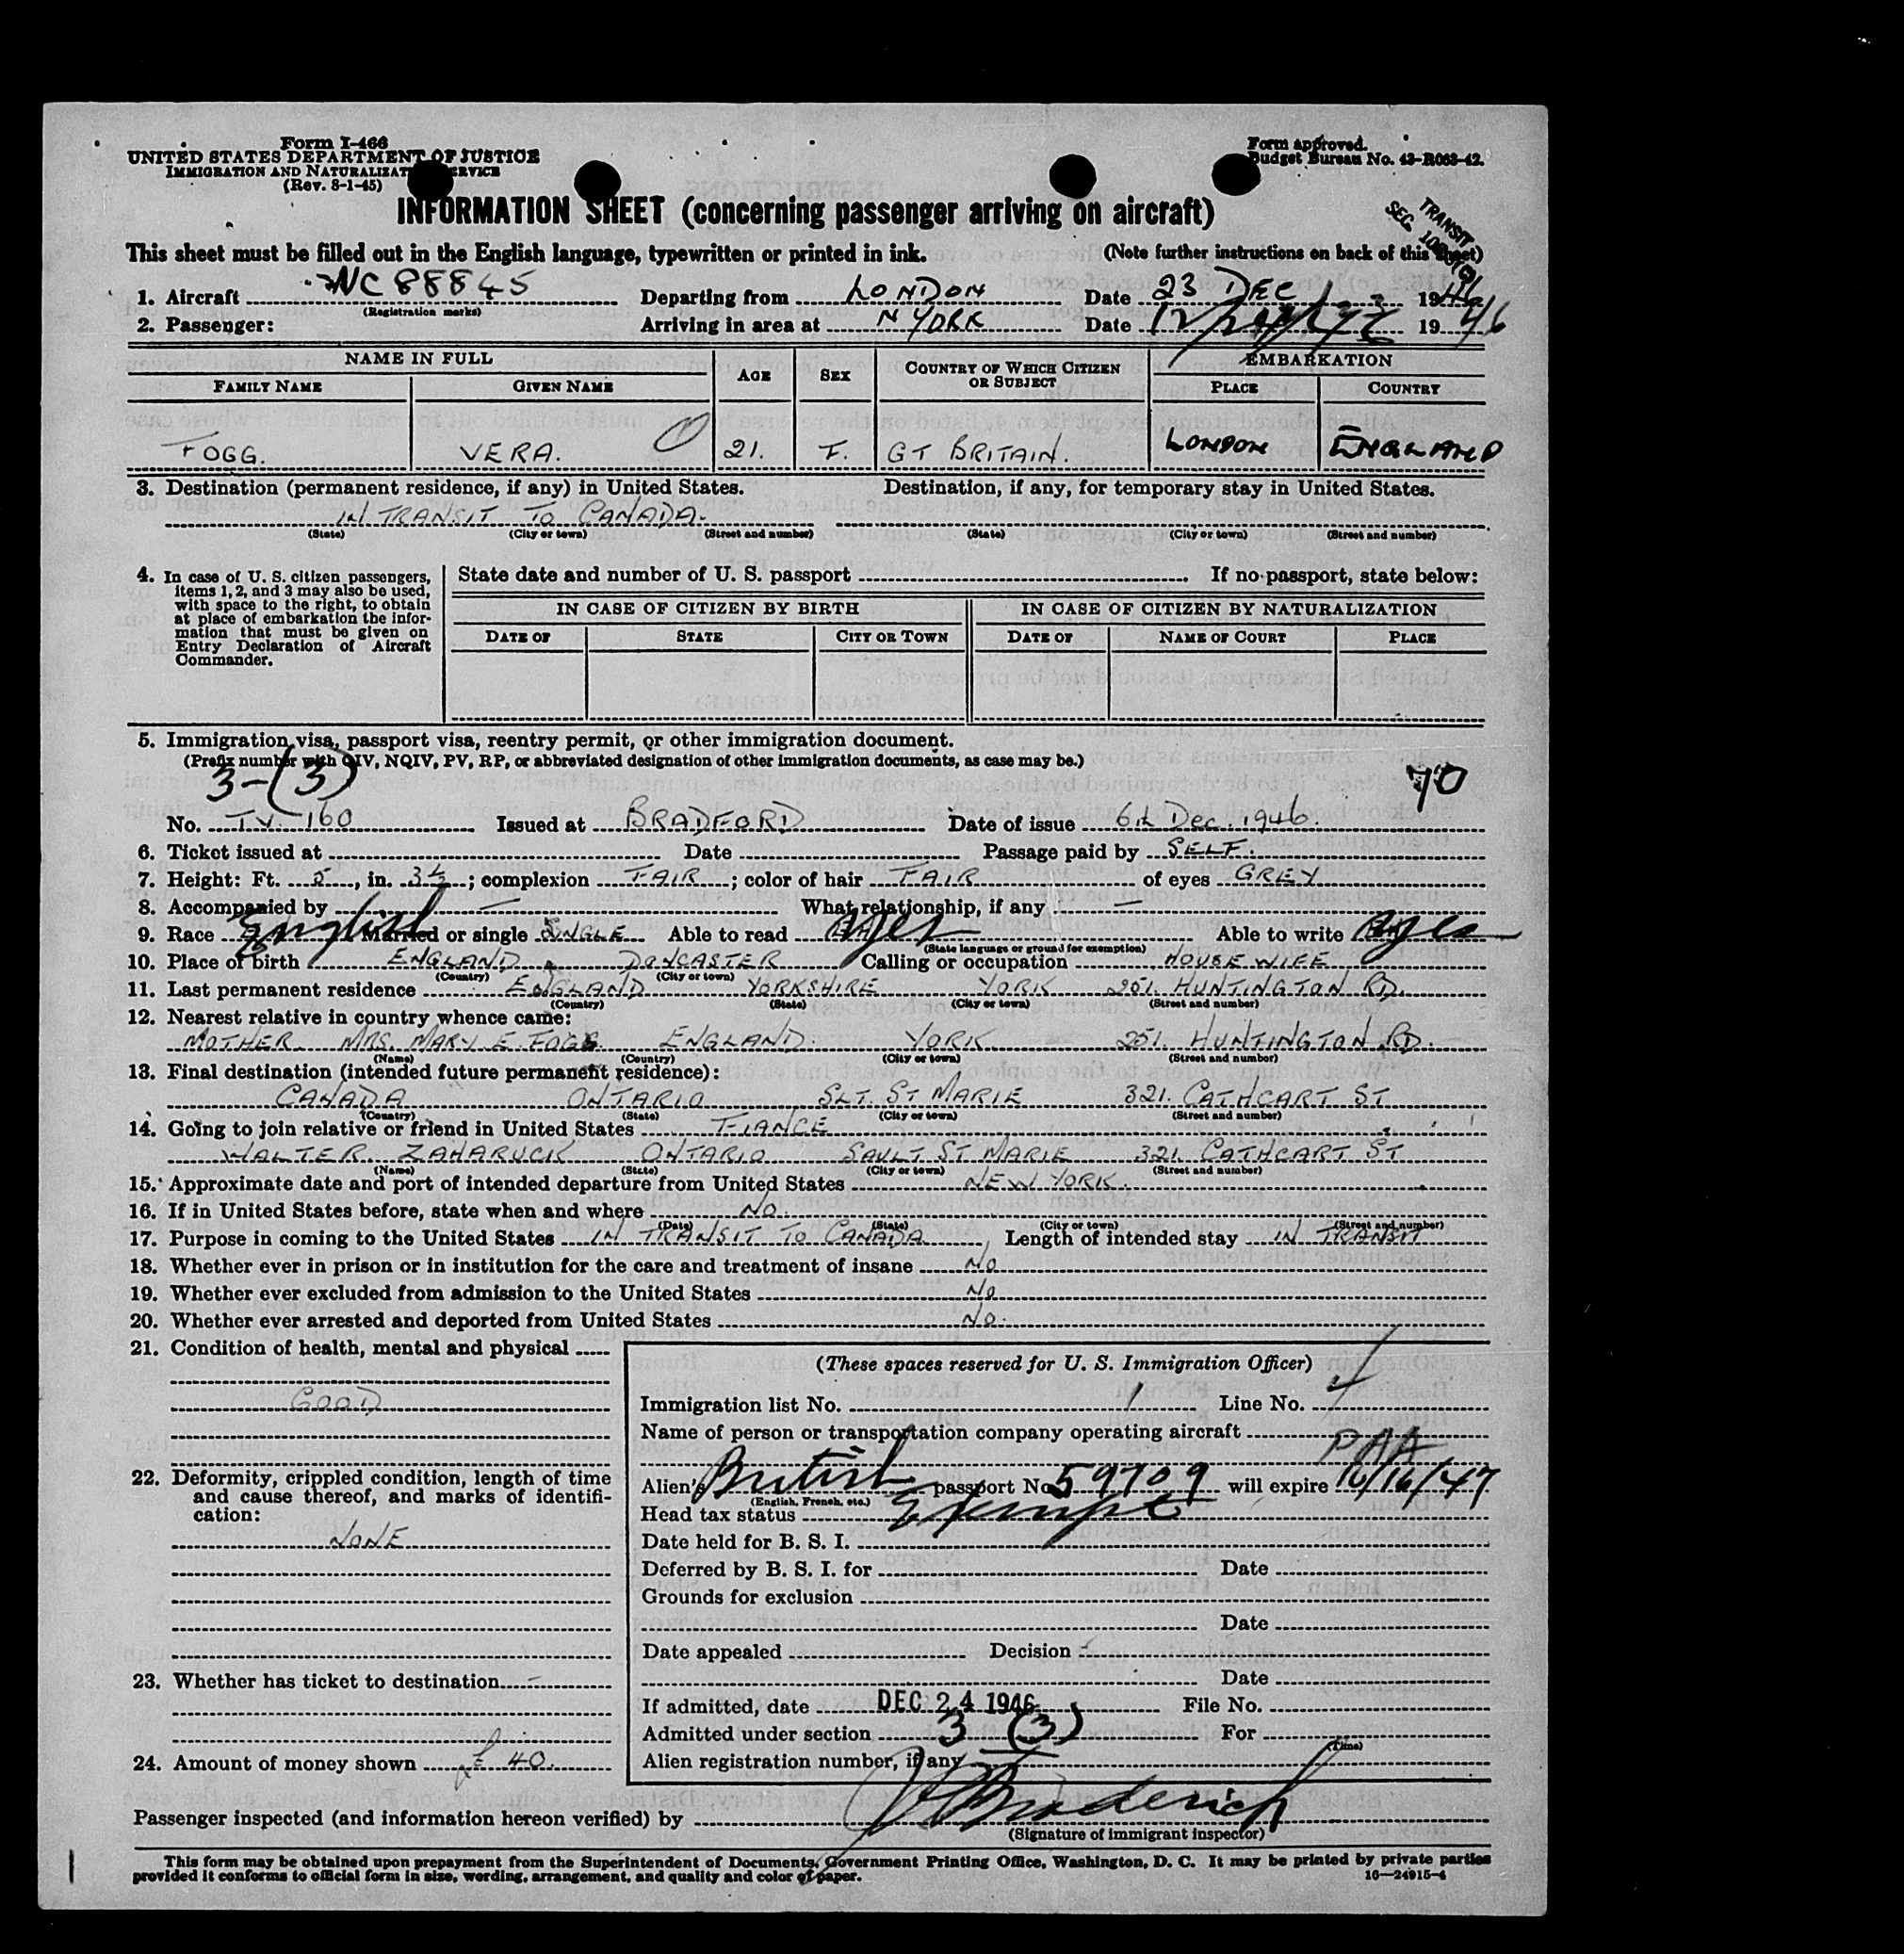 Form I-466
UNITED STATES DEPARTMENT OF JUSTICE
IMMIGRATION AND NATURALIZAT ERVICE
(Rev. 8-1-45)
Form approved.
Budget Bureau No. 43-R063-42.
INFORMATION SHEET (concerning passenger arriving on aircraft)
TRANSIT
SEC.
This sheet must be filled out in the English language, typewritten or printed in ink. (Note further instructions on back of this sheet)
1. Aircraft NC 88845 Departing from LONDON Date 23 DEC 1946
(Registration marks)
2. Passenger: Arriving in area at N YORK Date 12/24 1946
NAME IN FULL AGE SEX COUNTRY OF WHICH CITIZEN OR SUBJECT EMBARKATION
FAMILY NAME GIVEN NAME PLACE COUNTRY
FOGG. VERA. 21. F. GT BRITAIN. LONDON ENGLAND
3. Destination (permanent residence, if any) in United States. Destination, if any, for temporary stay in United States.
IN TRANSIT TO CANADA.
(State) (City or town) (Street and number) (State) (City or town) (Street and number)
4. In case of U. S. citizen passengers, items 1, 2, and 3 may also be used, with space to the right, to obtain at place of embarkation the information that must be given on Entry Declaration of Aircraft Commander.
State date and number of U. S. passport If no passport, state below:
IN CASE OF CITIZEN BY BIRTH IN CASE OF CITIZEN BY NATURALIZATION
DATE OF STATE CITY OR TOWN DATE OF NAME OF COURT PLACE
5. Immigration visa, passport visa, reentry permit, or other immigration document.
(Prefix number with QIV, NQIV, PV, RP, or abbreviated designation of other immigration documents, as case may be.)
3-(3) 70
No. T.V. 160 Issued at BRADFORD Date of issue 6th Dec. 1946.
6. Ticket issued at Date Passage paid by SELF.
7. Height: Ft. 5, in. 3½; complexion FAIR; color of hair FAIR of eyes GREY
8. Accompanied by — What relationship, if any —
9. Race English Married or single SINGLE Able to read yes Able to write yes
(State language or ground for exemption)
10. Place of birth ENGLAND DONCASTER Calling or occupation HOUSEWIFE
(Country) (City or town)
11. Last permanent residence ENGLAND YORKSHIRE YORK 251. HUNTINGTON RD.
(Country) (State) (City or town) (Street and number)
12. Nearest relative in country whence came:
MOTHER. MRS. MARY E. FOGG. ENGLAND. YORK 251. HUNTINGTON RD.
(Name) (Country) (City or town) (Street and number)
13. Final destination (intended future permanent residence):
CANADA ONTARIO SLT. ST MARIE 321. CATHCART ST
(Country) (State) (City or town) (Street and number)
14. Going to join relative or friend in United States FIANCE
WALTER. ZAHARUCK ONTARIO SAULT ST MARIE 321. CATHCART ST
(Name) (State) (City or town) (Street and number)
15. Approximate date and port of intended departure from United States NEW YORK.
16. If in United States before, state when and where NO.
(Date) (State) (City or town) (Street and number)
17. Purpose in coming to the United States IN TRANSIT TO CANADA Length of intended stay IN TRANSIT
18. Whether ever in prison or in institution for the care and treatment of insane NO
19. Whether ever excluded from admission to the United States NO
20. Whether ever arrested and deported from United States NO.
21. Condition of health, mental and physical
GOOD
22. Deformity, crippled condition, length of time and cause thereof, and marks of identification:
NONE
23. Whether has ticket to destination -
24. Amount of money shown £ 40.
(These spaces reserved for U. S. Immigration Officer)
Immigration list No. 1 Line No. 4
Name of person or transportation company operating aircraft
PAA
Alien's British passport No. 59709 will expire 10/16/47
(English, French, etc.)
Head tax status Exempt
Date held for B. S. I.
Deferred by B. S. I. for Date
Grounds for exclusion
Date
Date appealed Decision
Date
If admitted, date DEC 24 1946 File No.
Admitted under section 3 (3) For
(Time)
Alien registration number, if any
Passenger inspected (and information hereon verified) by Broderick
(Signature of immigrant inspector)
This form may be obtained upon prepayment from the Superintendent of Documents, Government Printing Office, Washington, D. C. It may be printed by private parties
provided it conforms to official form in size, wording, arrangement, and quality and color of paper.
16—24915-4